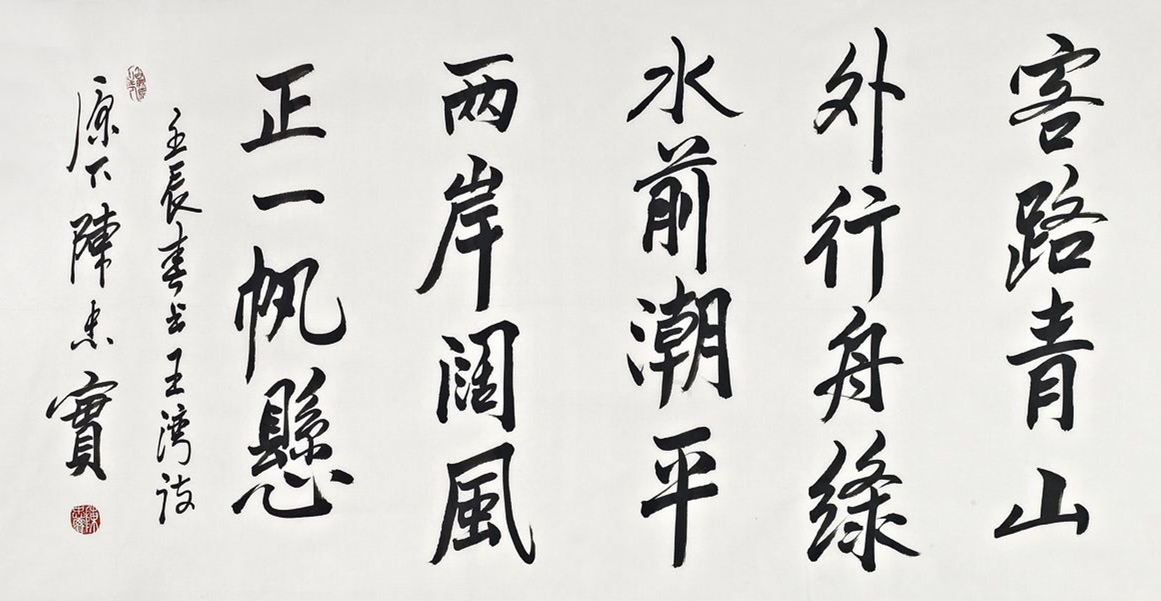 客路青山
外行舟綠
水前潮平
两岸闊風
正一帆懸
壬辰春书王湾诗
原下陳忠實